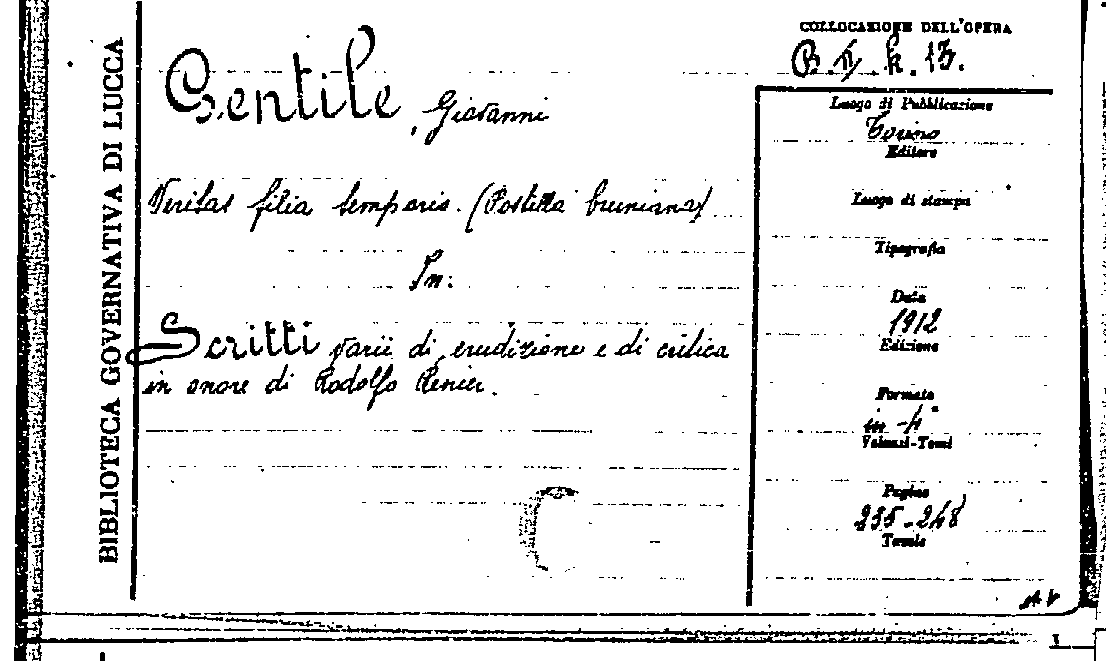 BIBLIOTECA GOVERNATIVA DI LUCCA
Gentile, Giovanni
Veritas filia temporis. (Postilla bruniana)
In:
Scritti varii di erudizione e di critica
in onore di Rodolfo Renier.
COLLOCAZIONE DELL'OPERA
B. II. k. 13.
Luogo di Pubblicazione
Torino
Editore
Luogo di stampa
Tipografia
Data
1912
Edizione
Formato
in-4°
Volumi-Tomi
Pagine
235-248
Tavole